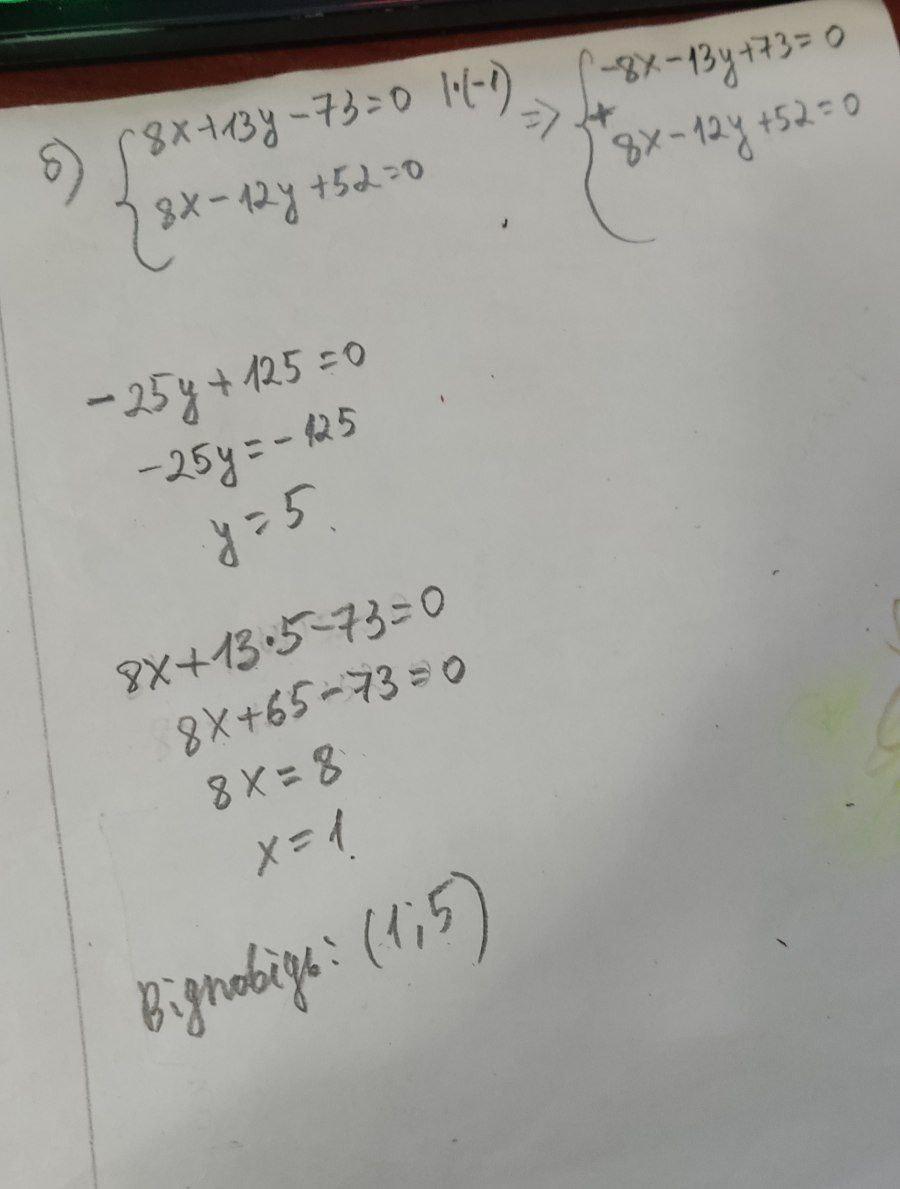 б) { 8x+13y-73=0 |·(-1) => { -8x-13y+73=0
8x-12y+52=0 + 8x-12y+52=0
-25y+125=0
-25y=-125
y=5.
8x+13·5-73=0
8x+65-73=0
8x=8
x=1.
Відповідь: (1;5)